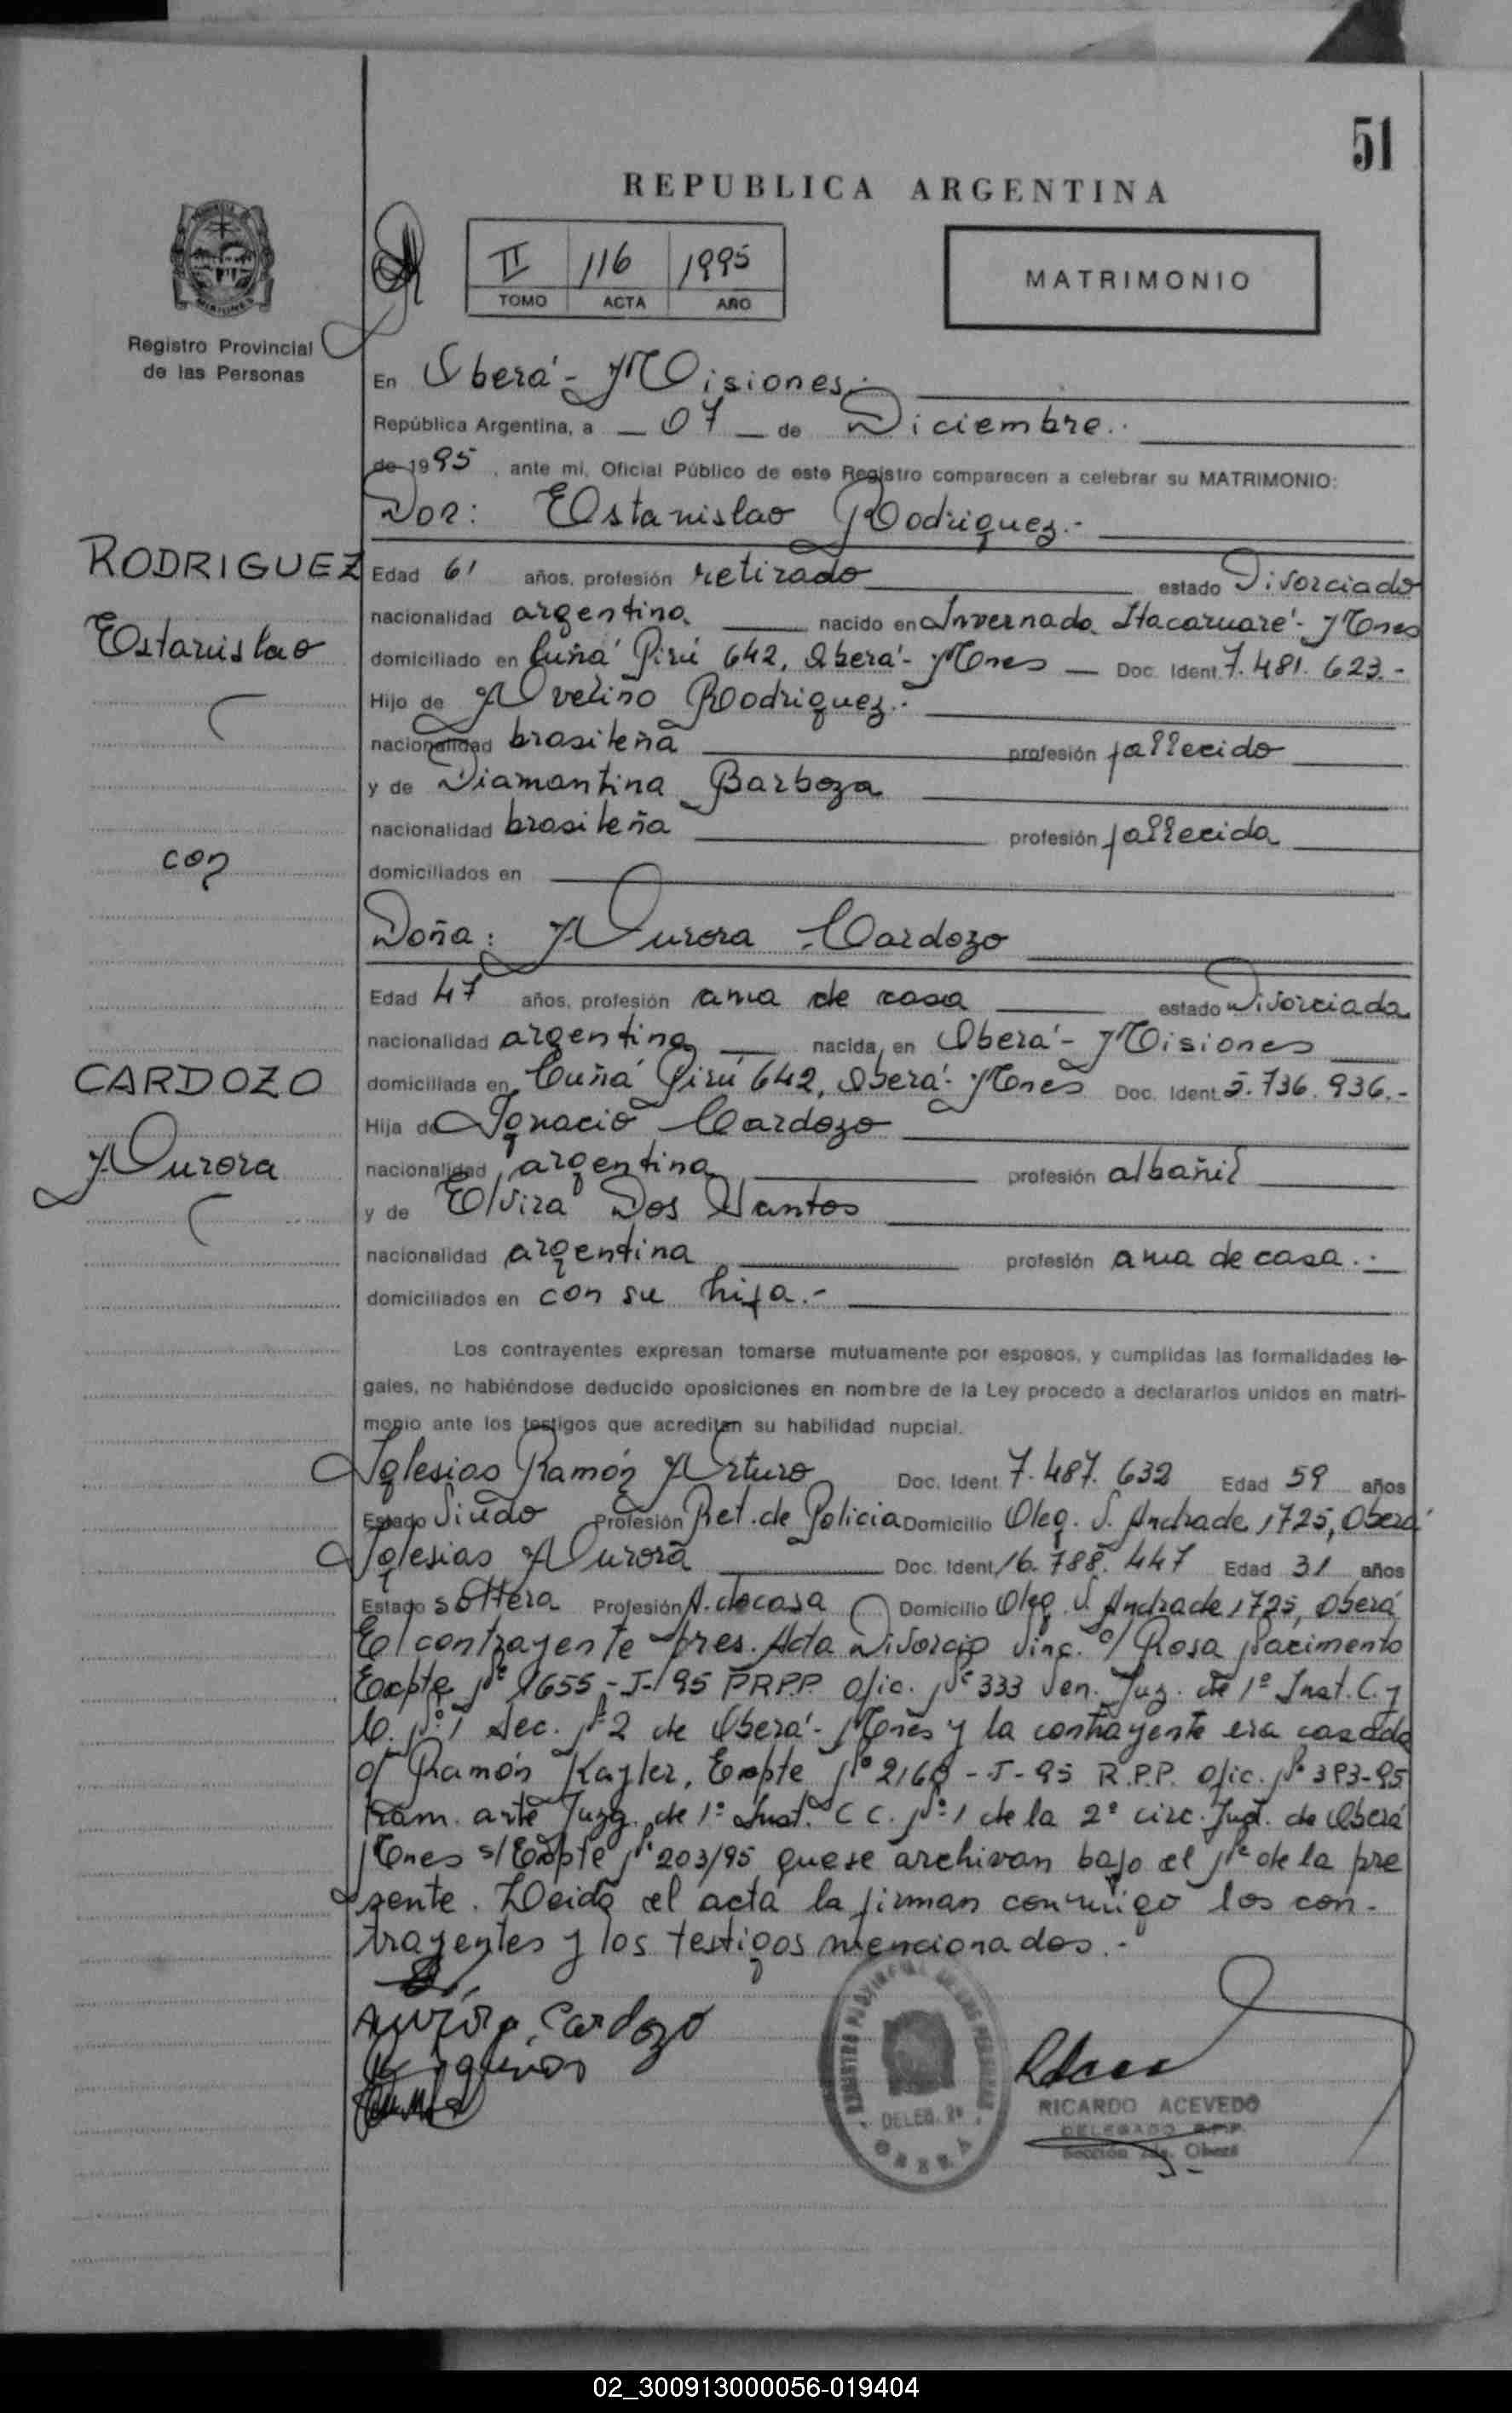 51
REPUBLICA ARGENTINA
II 116 1995
TOMO ACTA AÑO
MATRIMONIO
Registro Provincial
de las Personas
En Oberá - Misiones.-
República Argentina, a 07 de Diciembre.-
de 1995, ante mi, Oficial Público de este Registro comparecen a celebrar su MATRIMONIO:
Don: Estanislao Rodriguez.-
RODRIGUEZ
Estanislao
con
CARDOZO
Aurora
Edad 61 años, profesión retirado estado Divorciado
nacionalidad argentina nacido en Invernada Itacaruaré - Mones
domiciliado en Cuñá Pirú 642, Oberá - Mones Doc. Ident. 7.481.623.-
Hijo de Avelino Rodriguez.-
nacionalidad brasileña profesión fallecido
y de Diamantina Barboza
nacionalidad brasileña profesión fallecida
domiciliados en
Doña: Aurora Cardozo
Edad 47 años, profesión ama de casa estado Divorciada
nacionalidad argentina nacida en Oberá - Misiones
domiciliada en Cuñá Pirú 642, Oberá - Mones Doc. Ident. 5.736.936.-
Hija de Ignacio Cardozo
nacionalidad argentina profesión albañil
y de Elvira Dos Santos
nacionalidad argentina profesión ama de casa.-
domiciliados en con su hija.-
Los contrayentes expresan tomarse mutuamente por esposos, y cumplidas las formalidades le-
gales, no habiéndose deducido oposiciones en nombre de la Ley procedo a declararlos unidos en matri-
monio ante los testigos que acreditan su habilidad nupcial.
Iglesias Ramón Arturo Doc. Ident 7.487.632 Edad 59 años
Estado Viudo Profesión Ret. de Policia Domicilio Oleg. V. Andrade 1725, Oberá
Iglesias Aurora Doc. Ident 16.788.447 Edad 31 años
Estado soltera Profesión A. de casa Domicilio Oleg. V. Andrade 1725, Oberá
El contrayente pres. Acta Divorcio Vinc. c/ Rosa Nacimento
Expte Nº 1655-J-95 PRPP. Ofic. Nº 333 Ven. Juz. de 1º Inst. C. y
C. Nº 1 Sec. Nº 2 de Oberá - Mones y la contrayente era casada
c/ Ramón Kayler, Expte Nº 2168-J-95 R.P.P. Ofic. Nº 393-95
tram. ante Juzg. de 1º Inst. C C. Nº 1 de la 2º circ. Jud. de Oberá
Mones s/Expte Nº 203/95 que se archivan bajo el Nº de la pre
sente. Leida el acta la firman conmigo los con-
trayentes y los testigos mencionados.-
Aurora Cardozo
DELEG. 2ª
OBERA
RICARDO ACEVEDO
DELEGADO R.P.P.
Sección 2da. Oberá
02_300913000056-019404